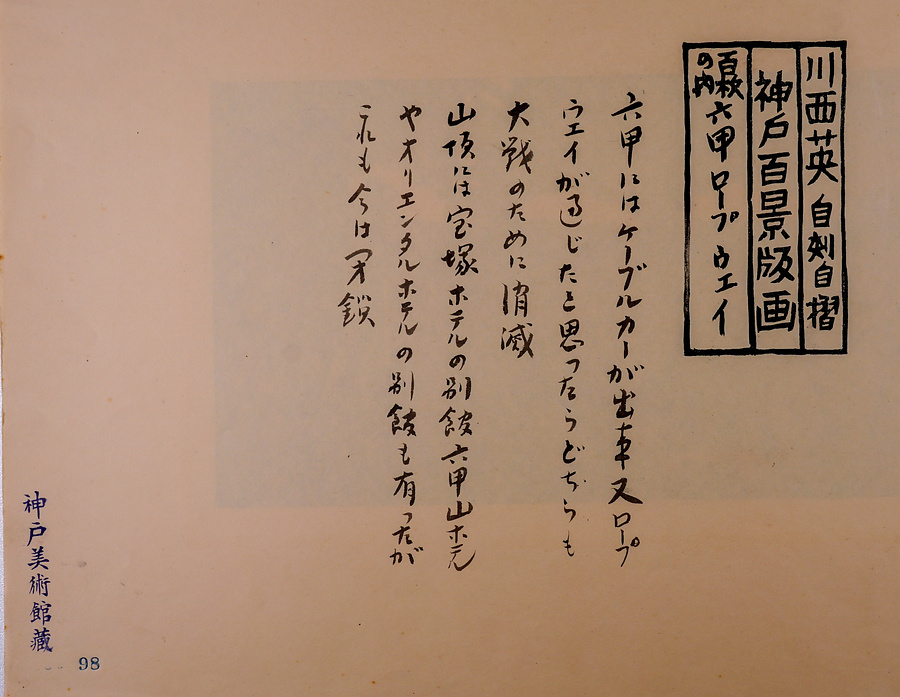 川西英 自刻自摺
神戸百景版画
百枚の内 六甲ロープウエイ
六甲にはケーブルカーが出来又ロープ
ウエイが通じたと思ったらどちらも
大戦のために消滅
山頂には宝塚ホテルの別館六甲山ホテル
やオリエンタルホテルの別館も有ったが
これも今は閉鎖
神戸美術館蔵
98